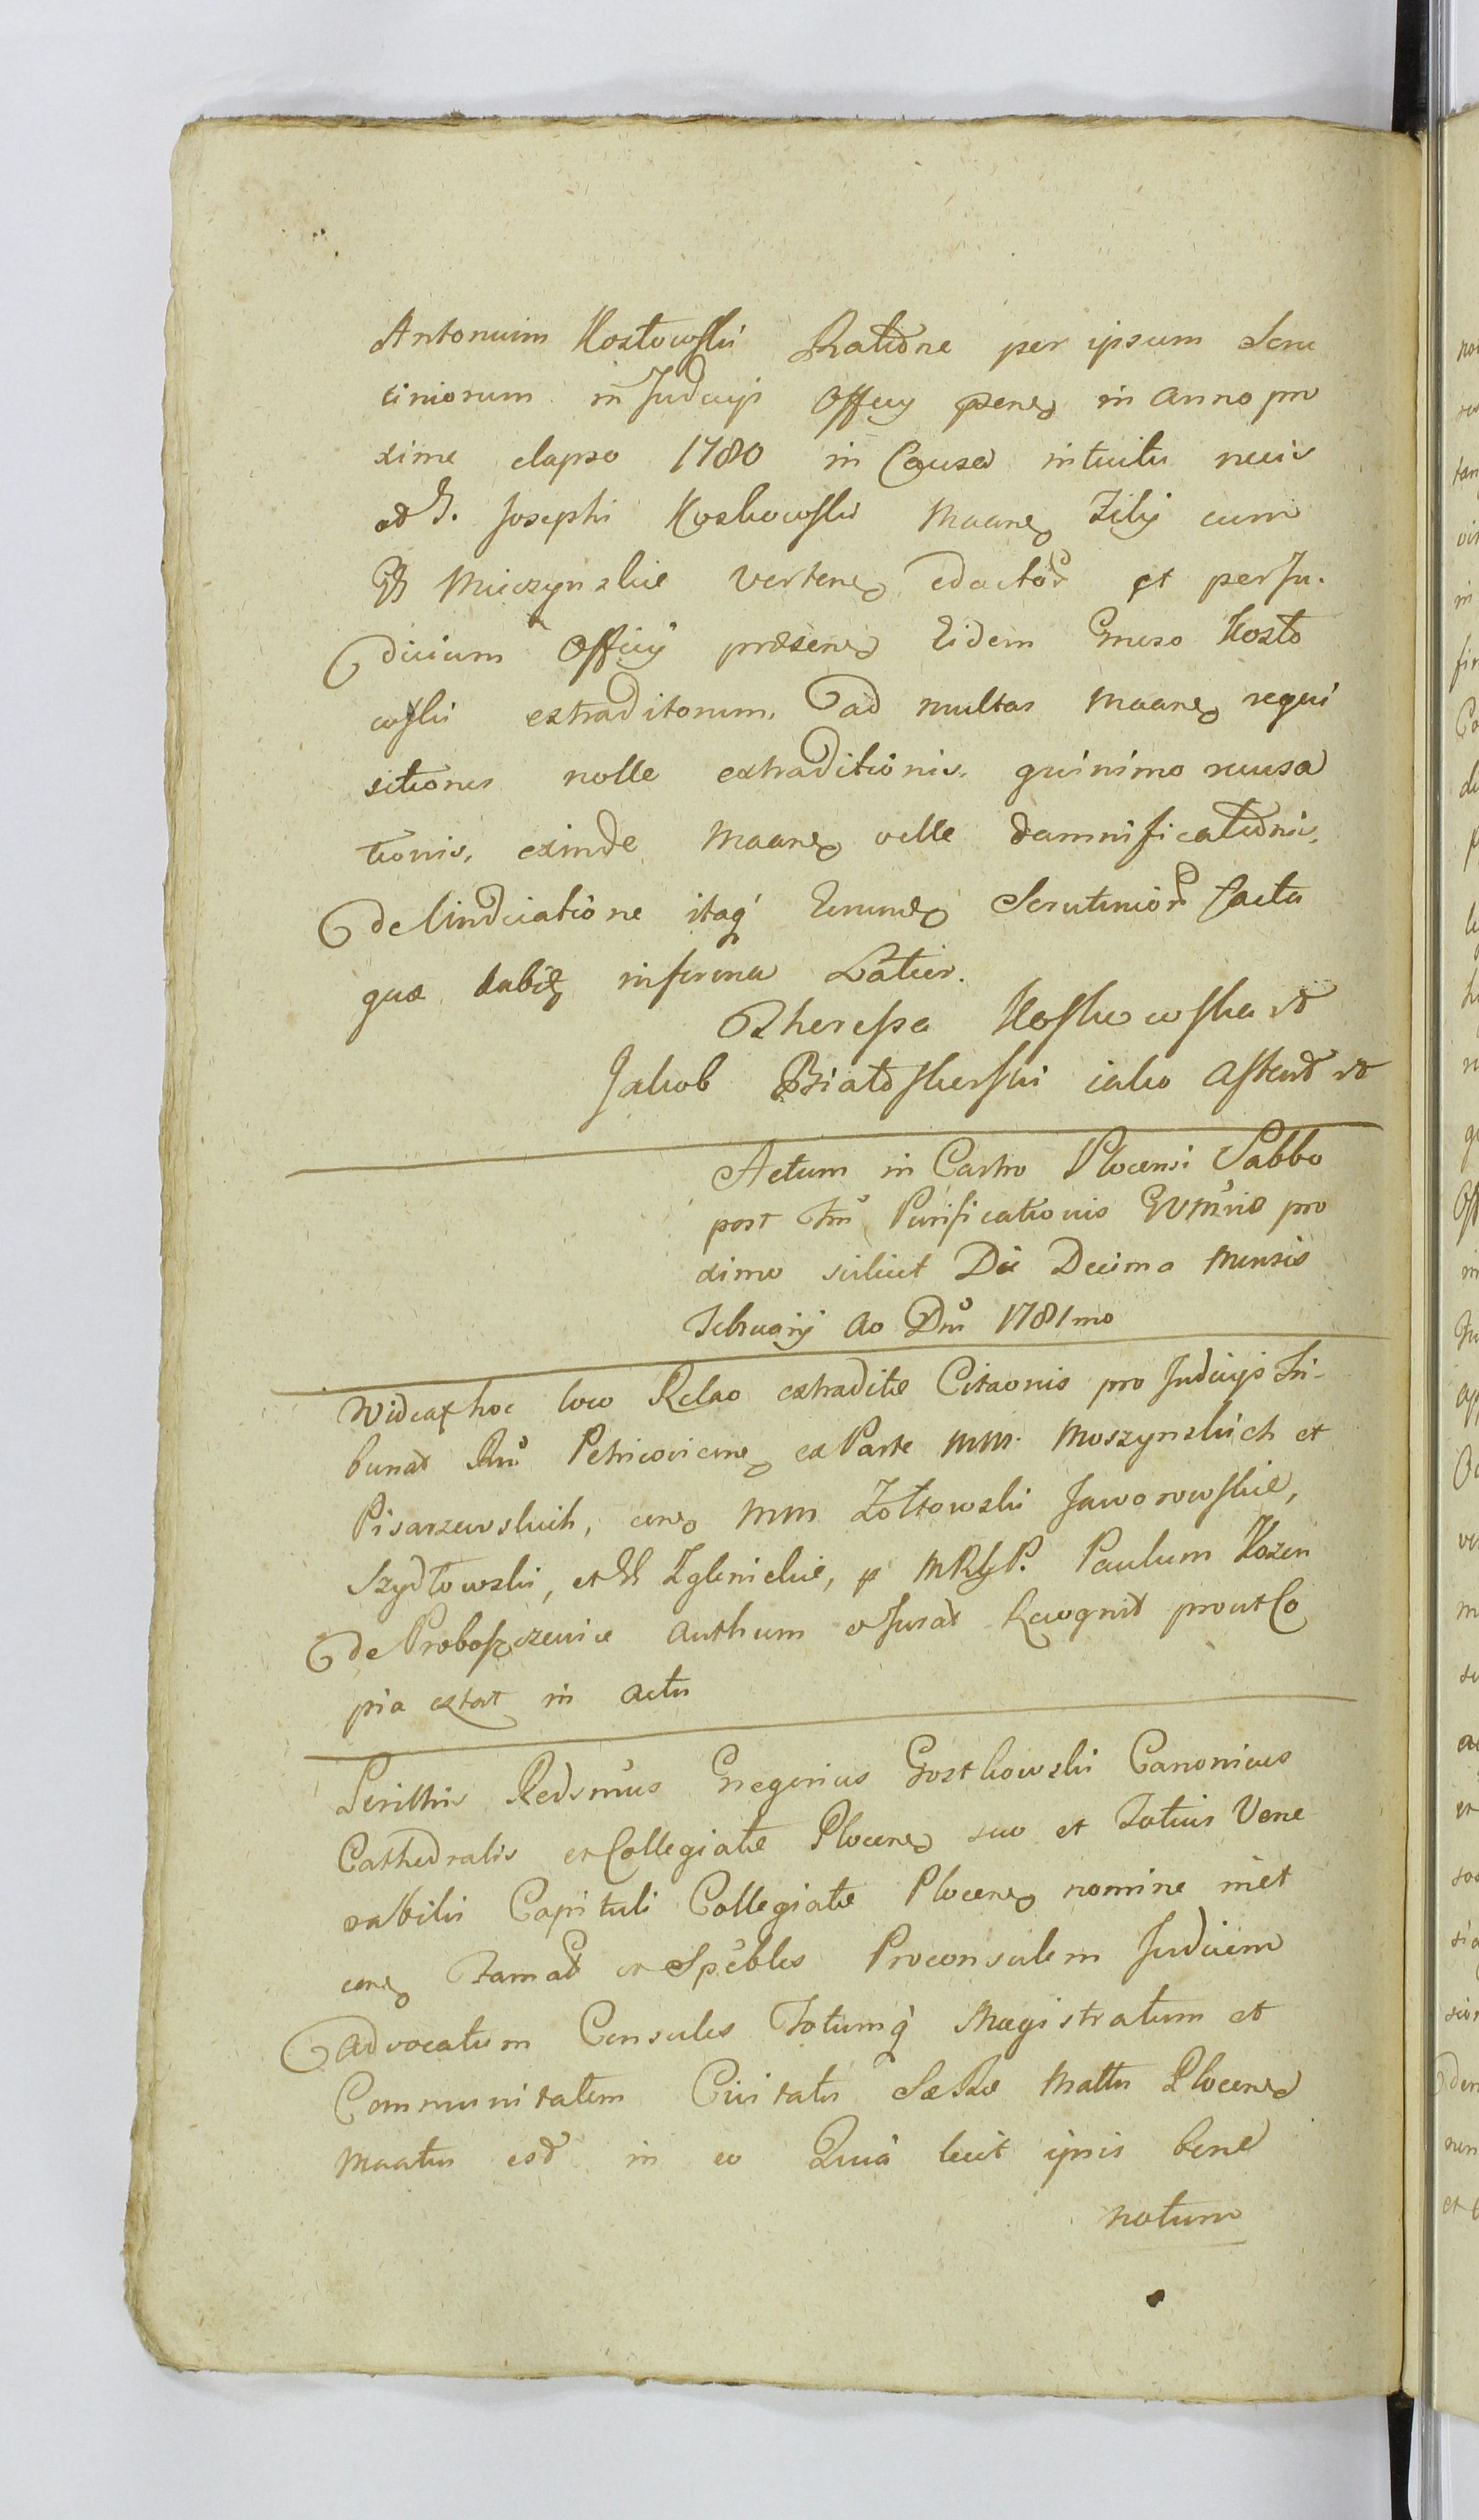 Antonium Kosztowski Ratione per ipsum Scru
tiniorum in Judicijs Officij psens in anno pro
xime elapso 1780 in Causa intuitu necis
od G. Josephi Koskowski Maans Filij cum
GG Mieczynskie vertens edactor et per Ju-
dicium Officij præsens Eidem Gnroso Koszto
wski extraditorum, ad multas Maans requi
sitiones nolle extraditionis, quinimo recusa
tionis, exinde Maans velle damnificationis,
de Vindicatione itaq Eorund Scrutinior facta
quæ habit inserina Latior.
Theressa Koskowska
Jakob Białoskurski iako Assistent
Actum in Castro Plocensi Sabbo
post Fm Purificationis GVMriæ pro
ximo scilicet Die Decima Mensis
Februarij Ao Dni 1781mo
Videat hoc loco Relao extraditæ Citaonis pro Judicijs Tri-
bunat Rni Petricoviens ex Parte MM. Moszynskich et
Pisarzewskich, cons MM Zołtowski Jaworowskie,
Szydłowski, et GG Zglenickie, p MRgP. Paulum Kozen
de Proboszczewice Authum et Jurat Recognit prout Co
pia extat in actu
Scriptus Redsmus Gregorius Gostkowski Canonicus
Cathedralis et Collegiatæ Plocens suo et Totius Vene
rabilis Capituli Collegiatæ Plocens nomine met
cons Famat et Spcbles Proconsulem Judicem
Advocatum Consules Totumq Magistratum et
Communitatem Civitatis SæRæ Mattis Plocens
Maatus est in eo Quia licet ipsis bene
notum